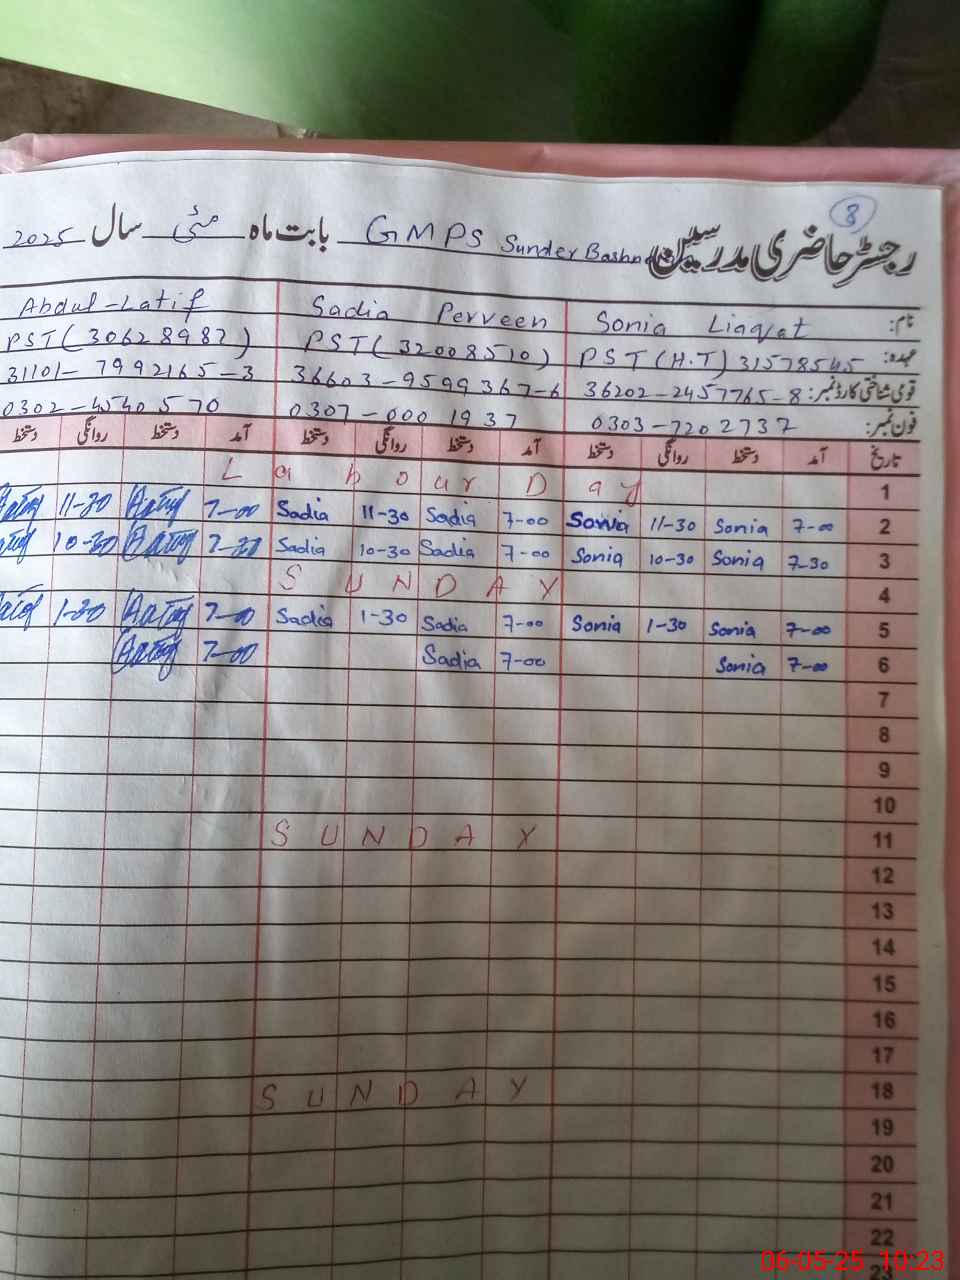 8
رجسٹر حاضری مدرسین GMPS Sunder بابت ماہ مئی سال 2025
نام: Sonia Liaqat Sadia Perveen Abdul-Latif
عہدہ: PST (H.T) 31578545 PST (32008510) PST (30628982)
قومی شناختی کارڈ نمبر: 36202-2457765-8 36603-9599367-6 31101-7992165-3
فون نمبر: 0303-7202737 0307-0001937 0302-4540570
تاریخ آمد دستخط روانگی دستخط آمد دستخط روانگی دستخط آمد دستخط روانگی دستخط
1 Labour Day
2 7-00 Sonia 11-30 Sonia 7-00 Sadia 11-30 Sadia 7-00 11-30
3 7-30 Sonia 10-30 Sonia 7-00 Sadia 10-30 Sadia 10-30
4 SUNDAY
5 7-00 Sonia 1-30 Sonia 7-00 Sadia 1-30 Sadia 7-00 1-30
6 7-00 Sonia 7-00 Sadia 7-00
7
8
9
10
11 SUNDAY
12
13
14
15
16
17
18 SUNDAY
19
20
21
22
23
06-05-25 10:23